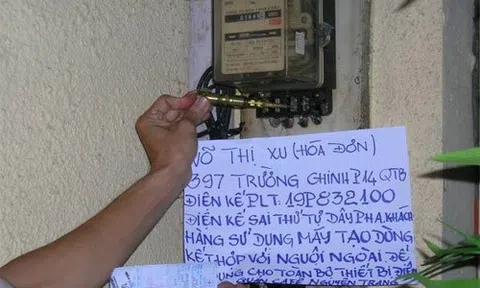 VÕ THỊ XU (HÓA ĐƠN)
397 TRƯỜNG CHINH P14 QTB
ĐIỆN KẾ PLT: 19P832100
ĐIỆN KẾ SAI THỨ TỰ DÂY PHA, KHÁCH
HÀNG SỬ DỤNG MÁY TẠO DÒNG
KẾT HỢP VỚI NGUỒN NGOÀI ĐỂ
DÙNG CHO TOÀN BỘ THIẾT BỊ ĐIỆN
QUÁN CAFÉ NGUYÊN TRANG